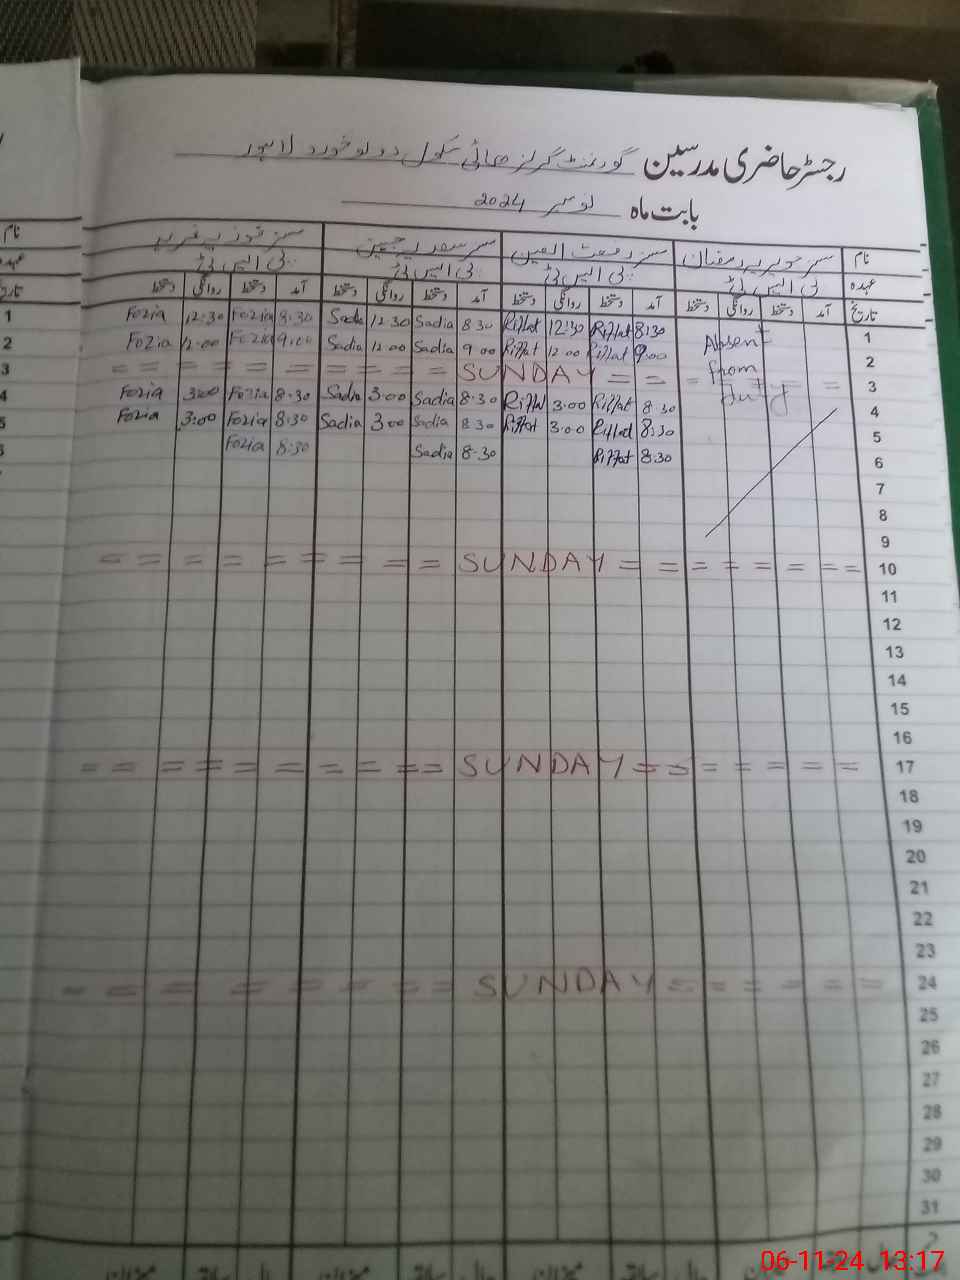 رجسٹر حاضری مدرسین گورنمنٹ گرلز ھائی سکول دولو خورد لاہور
بابت ماہ نومبر 2024
نام مسز جویریہ رمضان مسز رفعت العین مسز سعدیہ جبین مسز فوزیہ
عہدہ ئی ایس ئی ئی ایس ئی ئی ایس ئی ئی ایس ئی
تاریخ آمد دستخط روانگی دستخط آمد دستخط روانگی دستخط آمد دستخط روانگی دستخط آمد دستخط روانگی دستخط
Fozia 12:30 Fozia 8:30 Sadia 12:30 Sadia 8:30 Riffat 12:30 Riffat 8:30 1
Fozia 12:00 Fozia 9:00 Sadia 12:00 Sadia 9:00 Riffat 12:00 Riffat 9:00 Absent 2
= = = = = = = = SUNDAY = = = = = from 3
Fozia 3:00 Fozia 8:30 Sadia 3:00 Sadia 8:30 Riffat 3:00 Riffat 8:30 Duty 4
Fozia 3:00 Fozia 8:30 Sadia 3:00 Sadia 8:30 Riffat 3:00 Riffat 8:30 5
Fozia 8:30 Sadia 8:30 Riffat 8:30 6
7
8
9
= = = = = = = = = SUNDAY = = = = = = = = 10
11
12
13
14
15
16
= = = = = = = = = = SUNDAY = = = = = = = 17
18
19
20
21
22
23
= = = = = = = = SUNDAY = = = = = = = 24
25
26
27
28
29
30
31
06-11-24 13:17